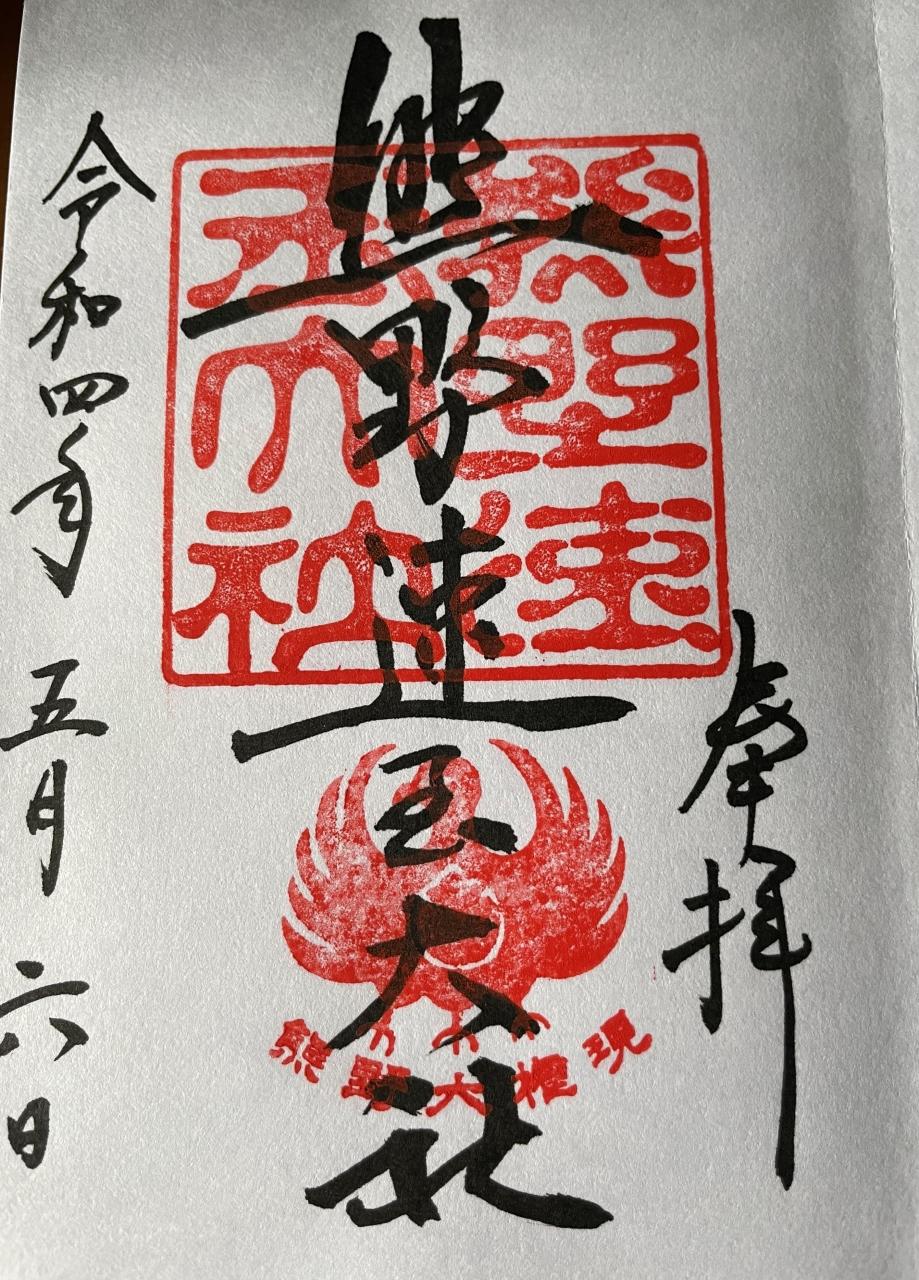 奉拝
熊野速玉大社
熊野速
玉大社
熊野大権現
令和四年 五月 六日